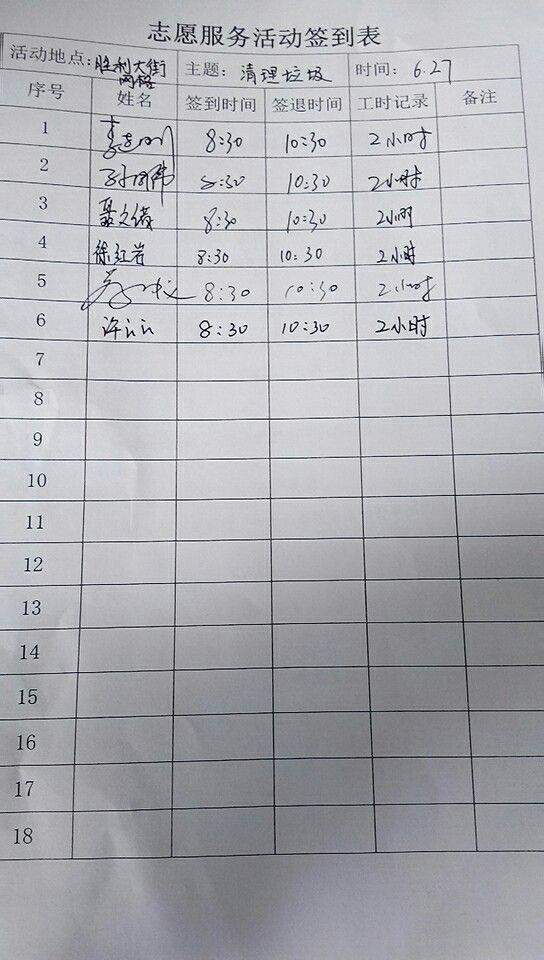 志愿服务活动签到表
活动地点：胜利大街 主题：清理垃圾 时间：6.27
序号 姓名 签到时间 签退时间 工时记录 备注
1 8:30 10:30 2小时
2 8:30 10:30 2小时
3 8:30 10:30 2小时
4 徐红岩 8:30 10:30 2小时
5 8:30 10:30 2小时
6 许云云 8:30 10:30 2小时
7
8
9
10
11
12
13
14
15
16
17
18